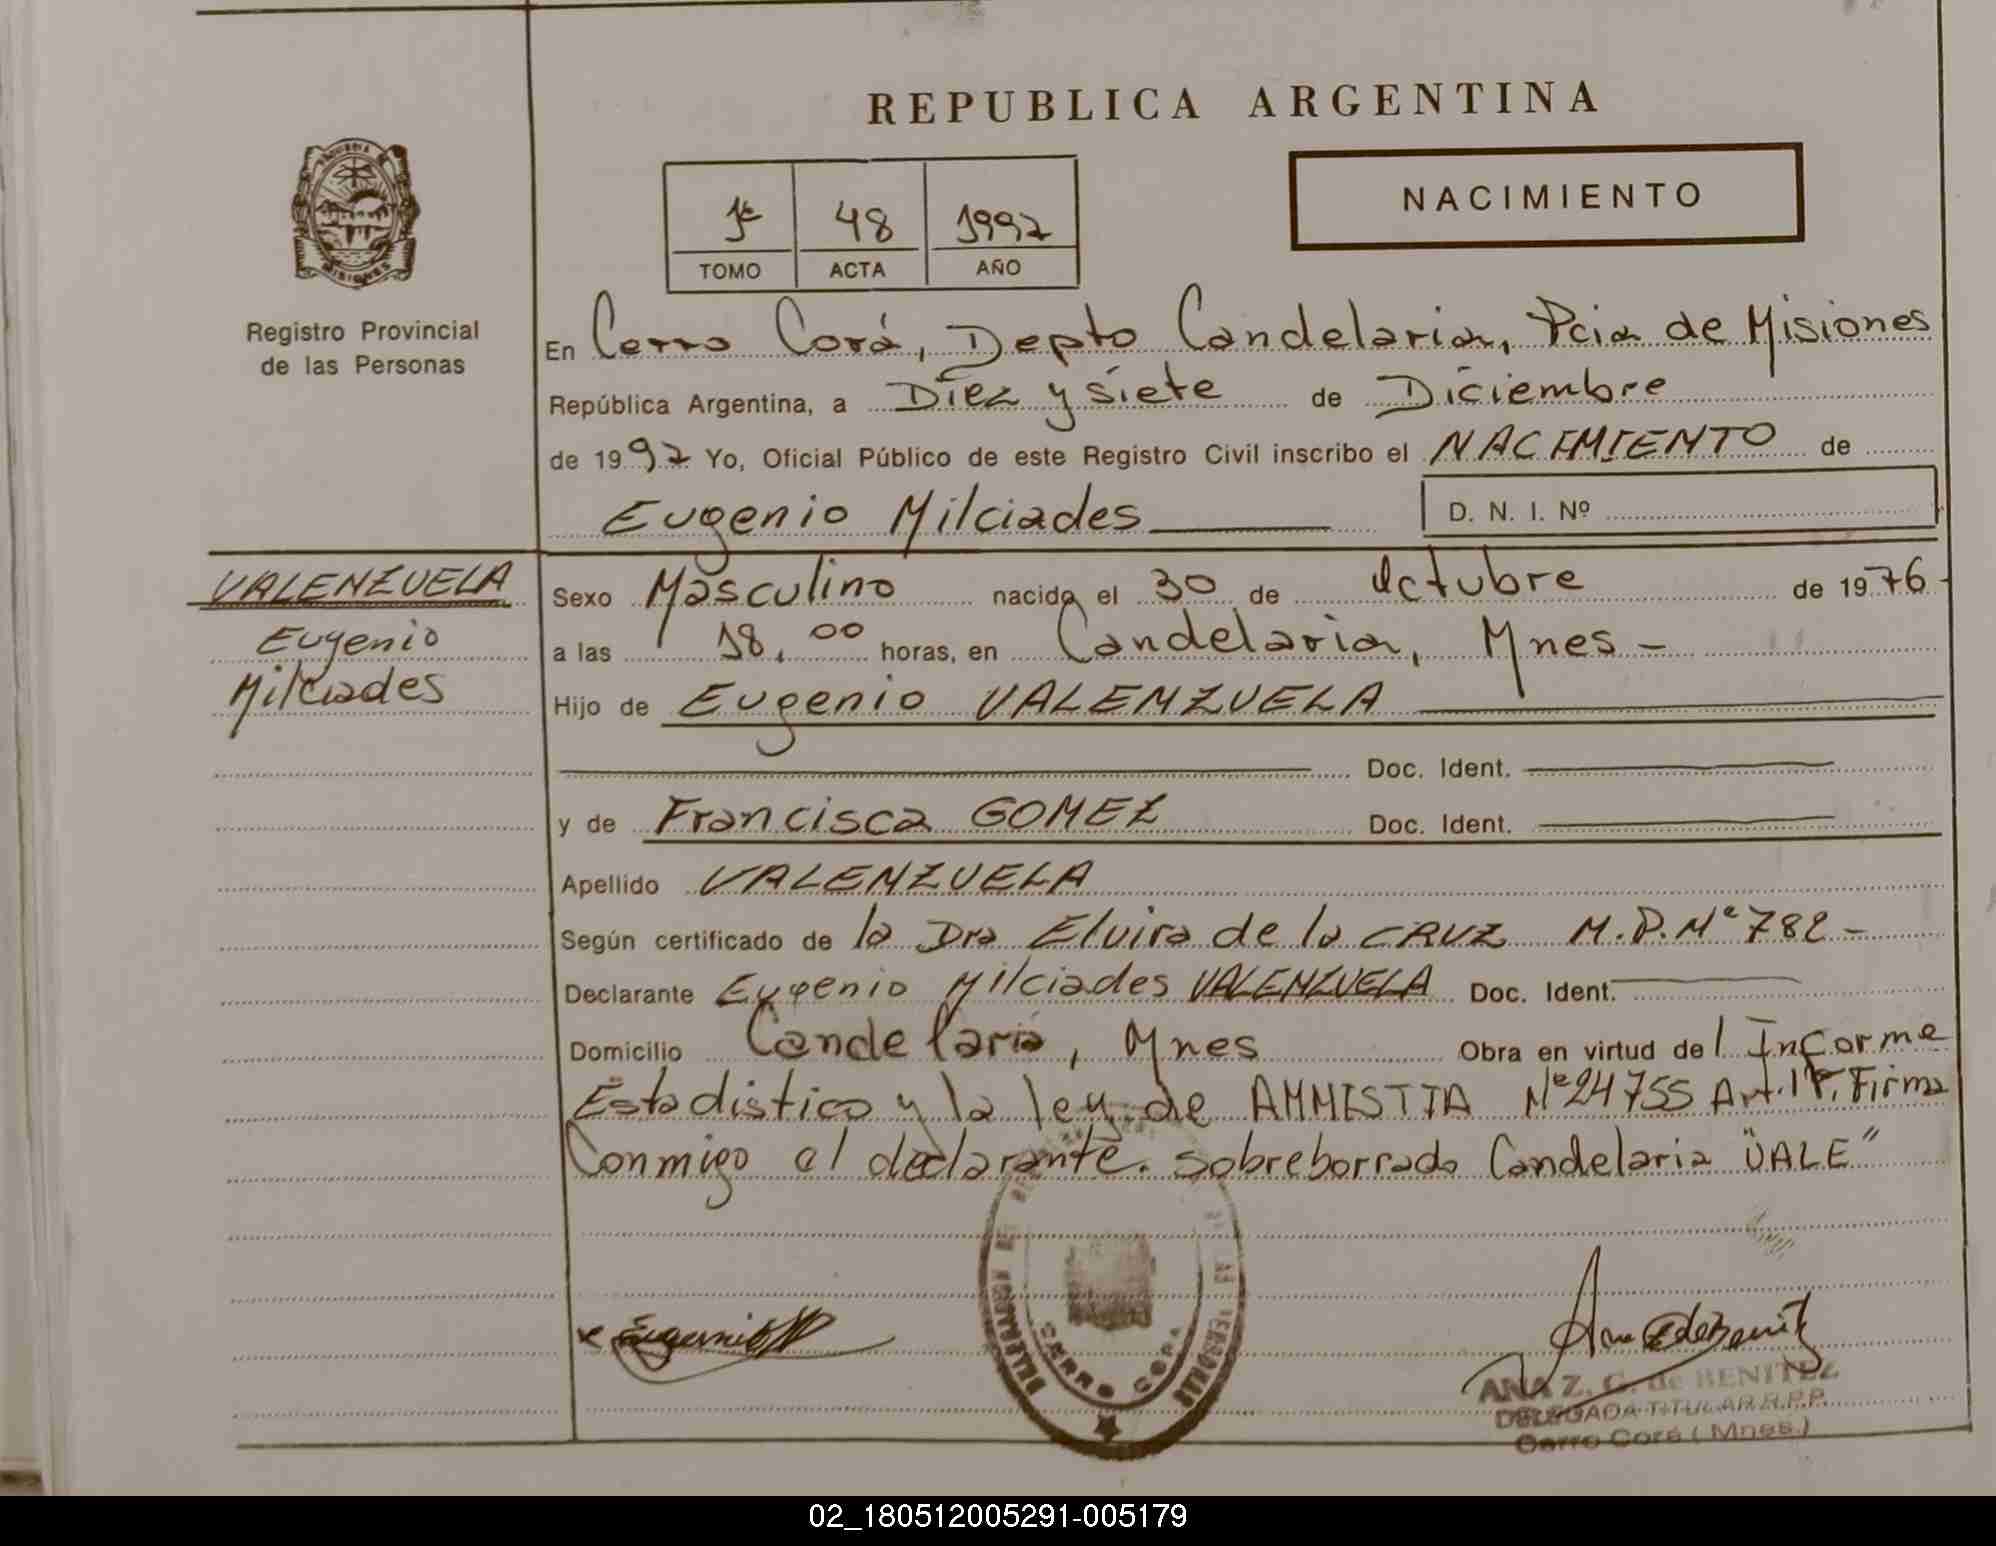 REPUBLICA ARGENTINA
MISIONES
Registro Provincial
de las Personas
1º 48 1997
TOMO ACTA AÑO
NACIMIENTO
En Cerro Corá, Depto Candelaria, Pcia de Misiones
República Argentina, a Diez y siete de Diciembre
de 1997 Yo, Oficial Público de este Registro Civil inscribo el NACIMIENTO de
Eugenio Milciades
D. N. I. Nº
VALENZUELA
Eugenio
Milciades
Sexo Masculino nacido el 30 de Octubre de 1976
a las 18,00 horas, en Candelaria, Mnes -
Hijo de Eugenio VALENZUELA
Doc. Ident.
y de Francisca GOMEZ Doc. Ident.
Apellido VALENZUELA
Según certificado de la Dra Elvira de la CRUZ M.P.Nº 782 -
Declarante Eugenio Milciades VALENZUELA Doc. Ident.
Domicilio Candelaria, Mnes Obra en virtud del Informe
Estadistico y la ley de AMNISTIA Nº 24755 Art. 1º. Firma
Conmigo el declarante. Sobreborrado Candelaria "VALE"
Eugenio
CERRO CORA
DE LAS PERSONAS
ANA Z. G. de BENITEZ
DELEGADA TITULAR R.P.P.
Cerro Corá (Mnes.)
02_180512005291-005179